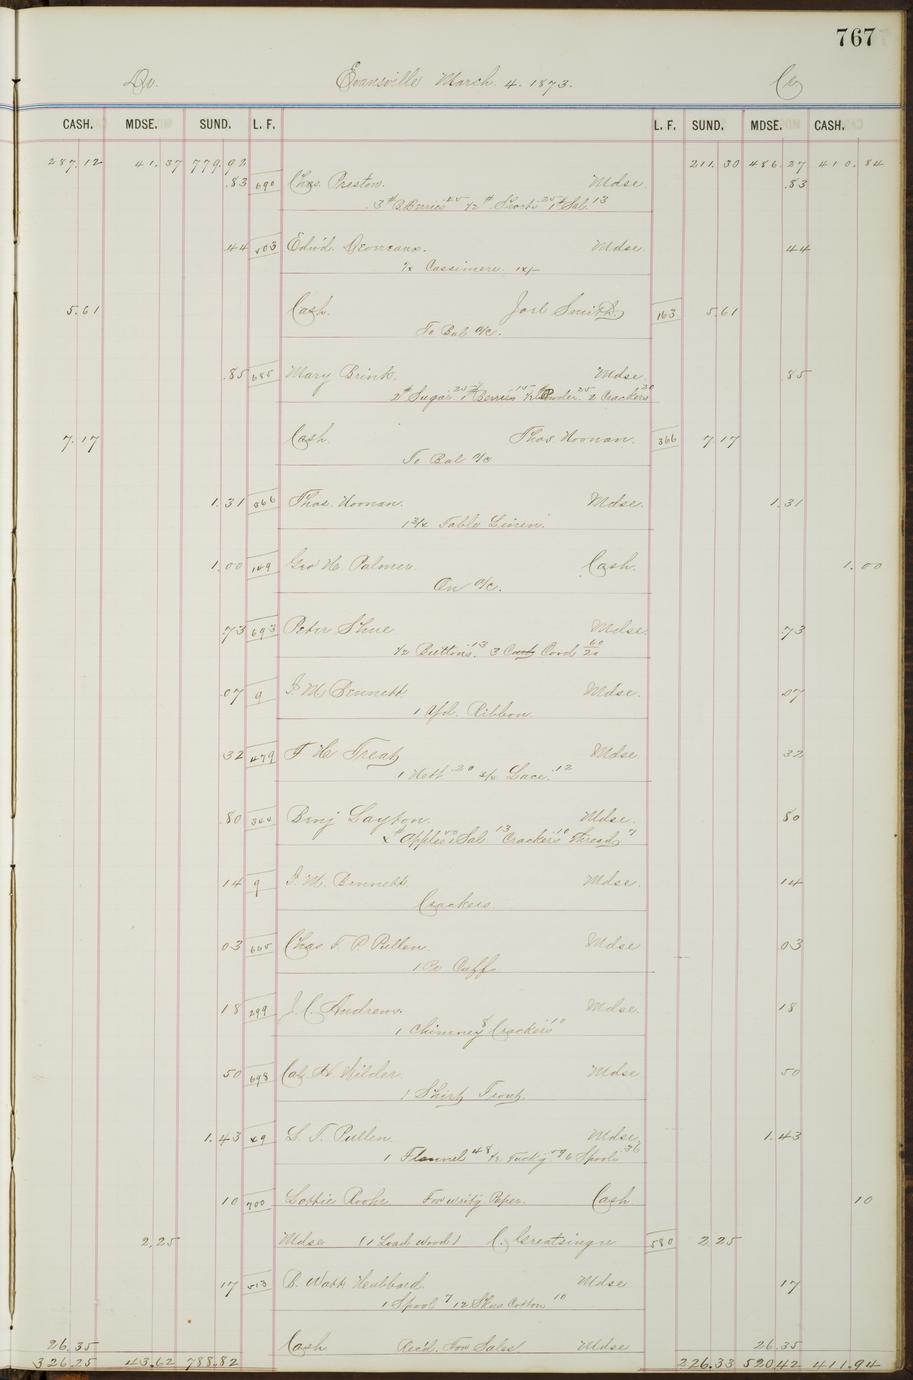 767
Dr. Evansville March 4. 1873. Cr
CASH. MDSE. SUND. L. F. L. F. SUND. MDSE. CASH.
287.12 41.37 779.92 211.30 486.27 410.84
.83 690 Chas. Preston. Mdse. .83
3 # B. Berries 45 1/2 # Shorts 25 1 # Sal. 13
.44 503 Edwd. Mdse. 44
Cassimere.
5.61 Cash. Joel Smith 163 5.61
To Bal a/c.
.85 685 Mary Brink. Mdse. 85
2 # Sugar 25 1 # Berries 15 Powder. 25 2 Crackers 20
7.17 Cash. Thos Noonan. 366 7 17
To Bal a/c
1.31 366 Thos. Noonan. Mdse. 1.31
1 3/4 Table Linen.
1.00 149 Geo H. Palmer. Cash. 1.00
On a/c.
.73 693 Peter Shue Mdse. .73
1/2 Buttons. 13 3 Cord 60/20
07 9 I. M. Bennett Mdse. 07
1 Yd. Ribbon
32 479 T H Treat Mdse 32
1 Nett 20 Lace. 12
.80 344 Benj Layton. Mdse. 80
Apples 1 Sal 13 Crackers 10 Thread 7
14 9 I. M. Bennett. Mdse. 14
Crackers.
03 665 Chas F. P. Pullen. Mdse 03
1 Pr Cuffs
18 299 J. C. Andrews. Mdse. 18
1 Chimney 8 Crackers 10
50 698 Cal. H. Wilder. Mdse 50
1 Shirt Front.
1.43 49 L. T. Pullen. Mdse. 1.43
1 Flannel 48 1/2 59 6 Spools 36
10 700 Lottie Rooke For writg Paper. Cash 10
2.25 Mdse (1 Load Wood) C. Greatsinger 580 2.25
17 513 D. Watt Hubbard. Mdse 17
1 Spool 7 12 Skns Cotton 10
26.35 Cash Rec'd. For Sales Mdse 26.35
326.25 43.62 788.82 226.33 520.42 411.94